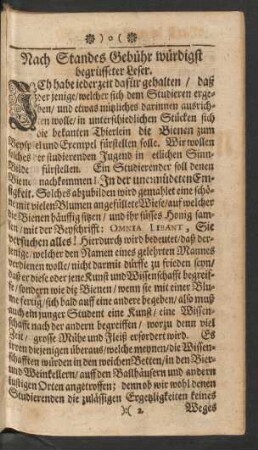 )o(
Nach Standes Gebühr würdigst
begrüsseter Leser.
ICh habe iederzeit dafür gehalten / daß
der jenige/welcher sich dem Studieren erge-
ben/ und etwas nützliches darinnen ausrich-
ten wolle/ in unterschiedlichen Stücken sich
die bekanten Thierlein die Bienen zum
Beyspiel und Exempel fürstellen solle. Wir wollen
solches der studierenden Jugend in etlichen Sinn-
bilde fürstellen. Ein Studierender soll denen
Bienen nachkommen: In der unermüdeten Em-
sigkeit. Solches abzubilden wird gemahlet eine schö-
ne mit vielen Blumen angefüllete Wiese/auf welcher
die Bienen häuffig sitzen/ und ihr süsses Honig sam-
len/mit der Beyschrifft: OMNIA LIBANT, Sie
versuchen alles! Hierdurch wird bedeutet/daß der-
jenige/welcher den Namen eines gelehrten Mannes
verdienen wolle/ nicht darmit dürffe zu frieden seyn/
daß er diese oder jene Kunst und Wissenschafft begreif-
fe/ sondern wie die Bienen/ wenn sie mit einer Blu-
me fertig/sich bald auff eine andere begeben/also muß
auch ein junger Student eine Kunst/ eine Wissen-
schafft nach der andern begreiffen/ worzu denn viel
Zeit/ grosse Mühe und Fleiß erfordert wird. Es
irren diejenigen überaus/welche meynen/die Wissen-
schafften würden in den weichen Betten/in den Bier-
und Weinkellern/ auff den Ballhäusern und andern
lustigen Orten angetroffen; dennob wir wohl denen
Studierenden die zulässigen Ergetzligkeiten keines
)( 2 Weges